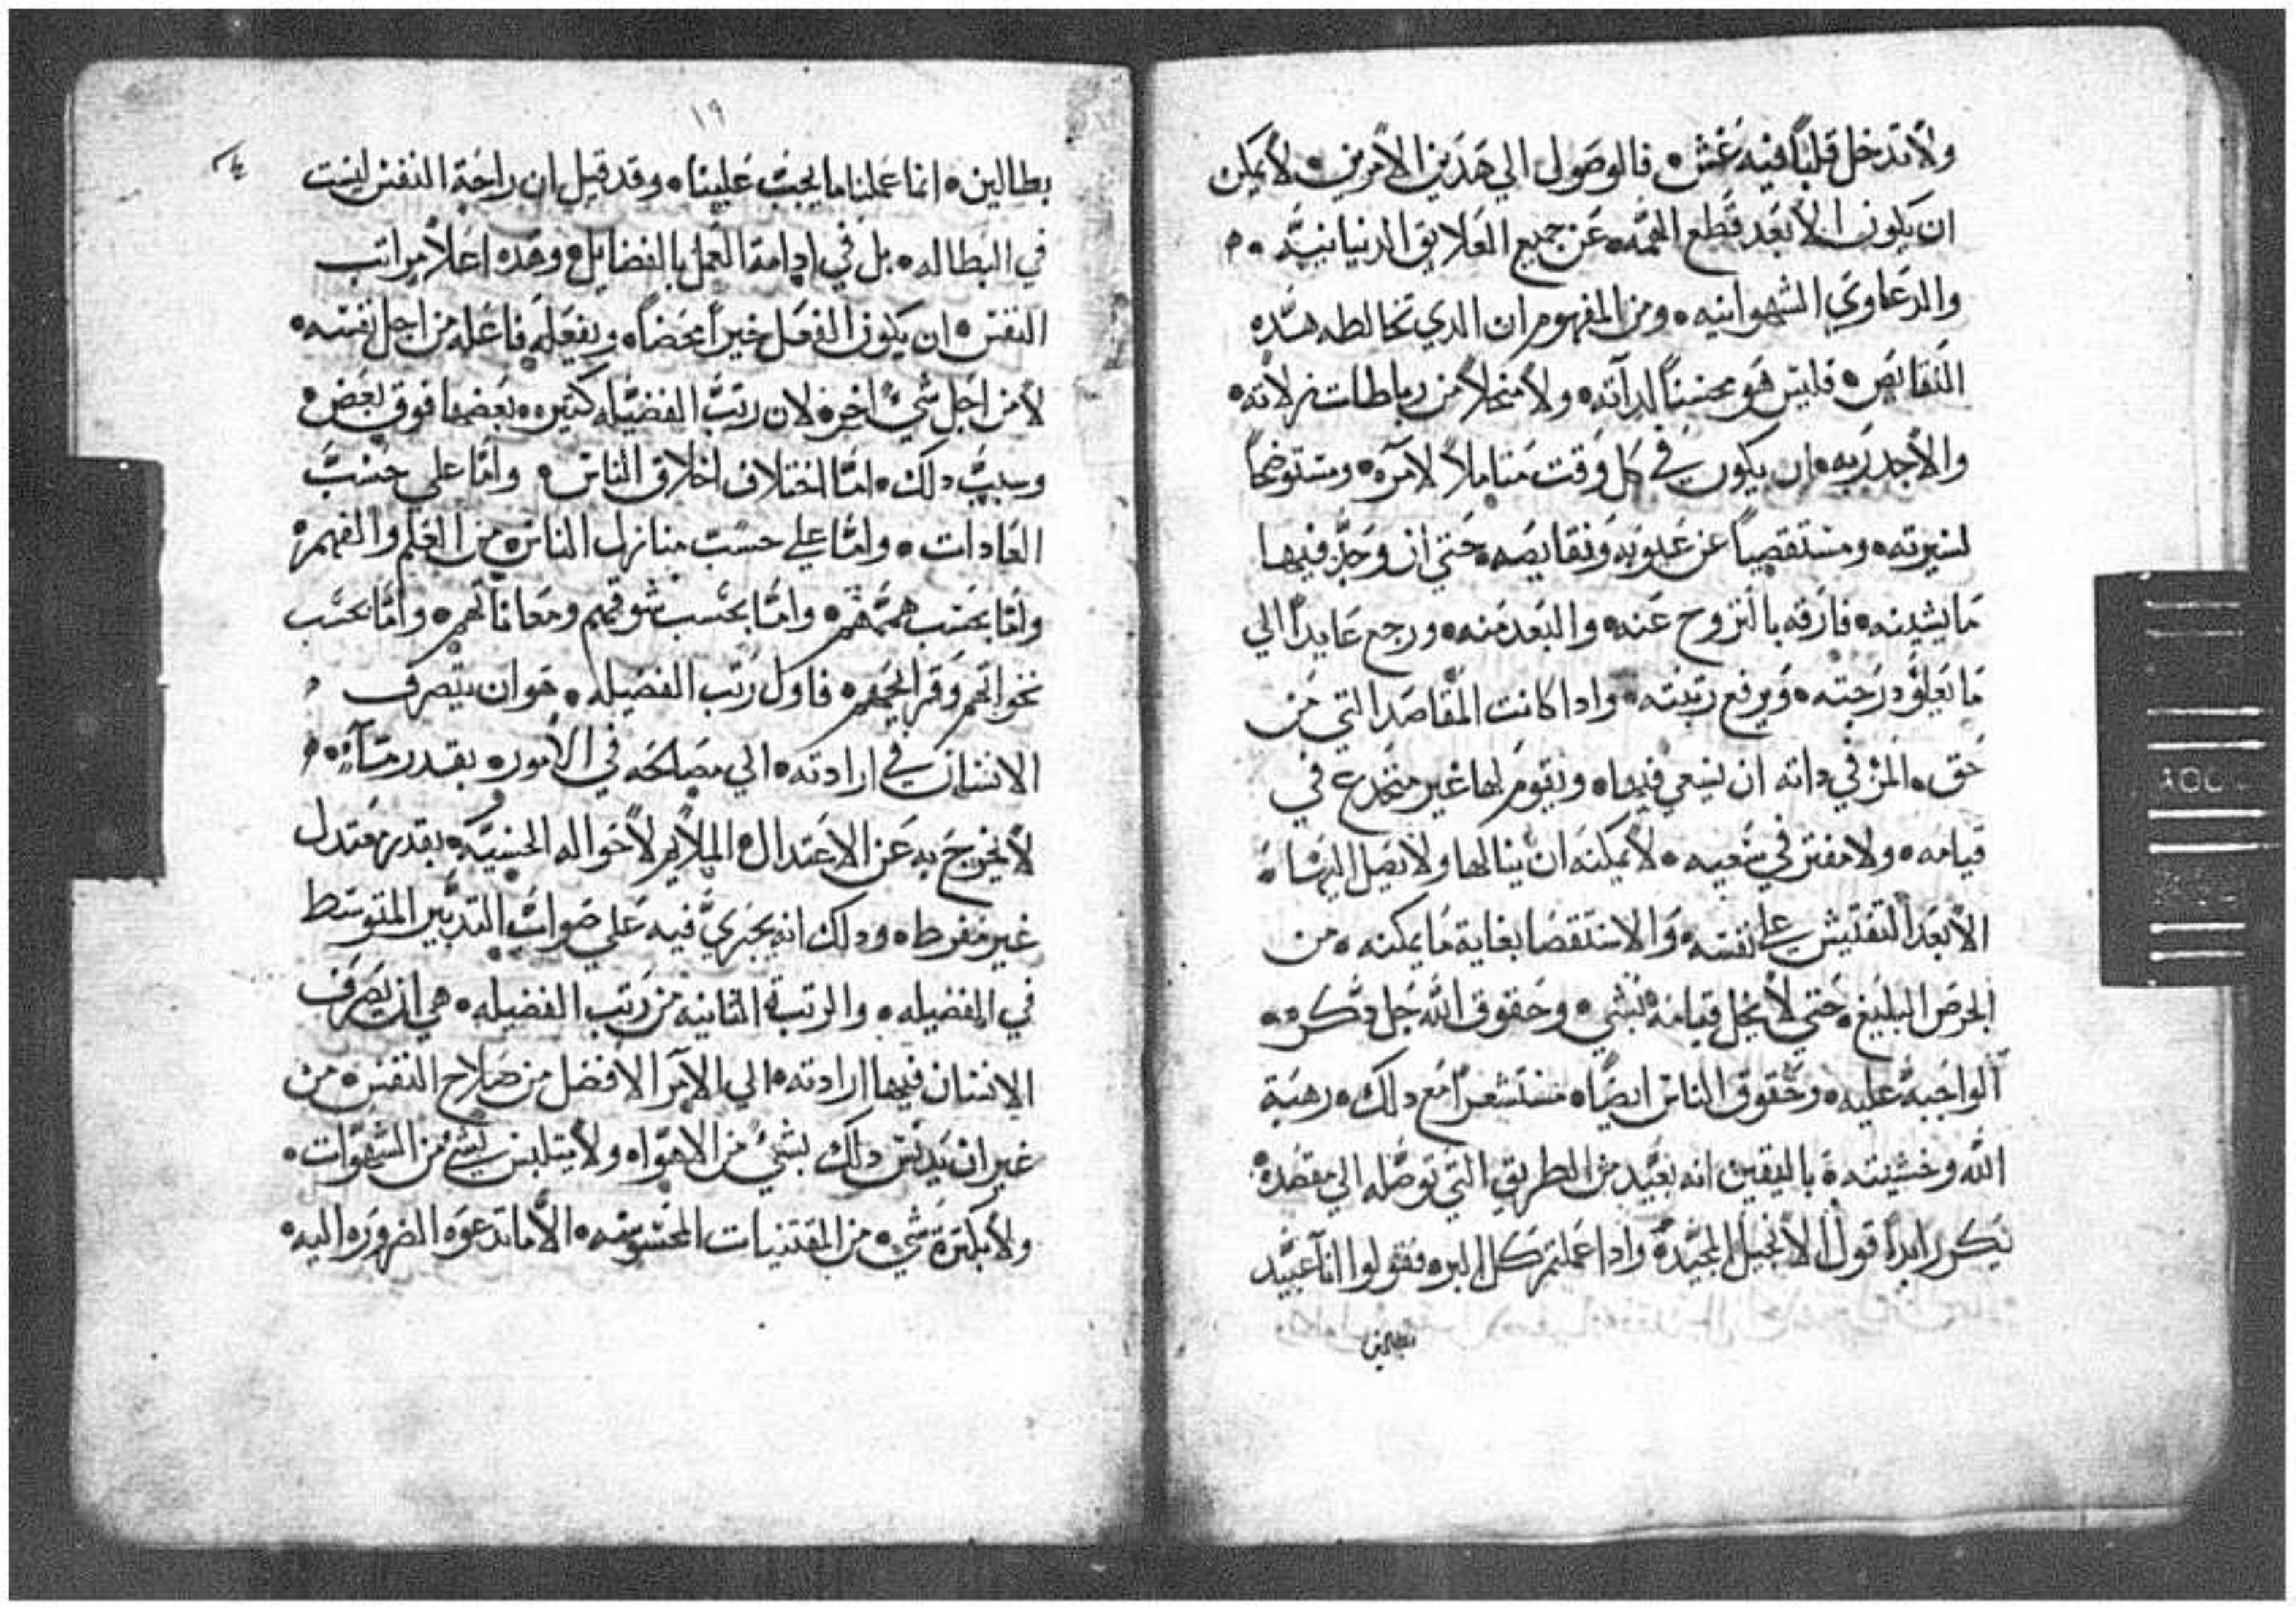 ولا تدخل قلبًا فيه غش ٠ فالوصول الي هدين الامرين ٠ لا يمكن
ان يكون الا بعد قطع الهمه ٠ عن جميع العلايق الدنيانيه ٠
والدعاوي الشهوانيه ٠ ومن المفهوم ان الدي تخالطه هده
النقايص ٠ فليس هو محسنًا لداته ٠ ولا منحلاً من رباطات زلاته ٠
والاجدر به ٠ ان يكون في كل وقت متاملاً لامره ٠ ومستوضحًا
لسيرته ٠ ومستقصيًا عن عيوبه ونقايصه ٠ حتي ان وجد فيها
ما يشينه ٠ فارقه بالنزوح عنه ٠ والبعد منه ٠ ورجع عايدًا الي
ما يعلو درجته ٠ ويرفع رتبته ٠ وادا كانت المقاصد التي من
حق ٠ المر في داته ان يسعي فيها ٠ ويقوم لها غير منخدع في
قيامه ٠ ولا مفتر في سعيه ٠ لا يمكنه ان ينالها ولا يصل اليها ٠
الا بعد التفتيش علي نفسه ٠ والاستقصا بغاية ما يمكنه ٠ من
الحرص البليغ ٠ حتي لا يخل قيامه بشي ٠ وحقوق الله جل دكره ٠
الواجبة عليه ٠ وحقوق الناس ايضًا ٠ مستشعرًا مع دلك ٠ رهبة
الله وخشيته ٠ باليقين انه بعيد من الطريق التي توصله الي مقصده ٠
يكرر ابدًا قول الانجيل المجيد ٠ وادا عملتم كل البر ٠ فقولوا انا عبيد
بطالين
١٩
بطالين ٠ انما عملنا ما يجب علينا ٠ وقد قيل ان راحة النفس ليست
في البطاله ٠ بل في ادامة العمل بالفضايل ٠ وهده اعلا مراتب
النفس ٠ ان يكون الفعل خيرًا محضًا ٠ ويفعله فاعله من اجل نفسه ٠
لا من اجل شي اخر ٠ لان رتب الفضيله كتيره ٠ بعضها فوق بعض ٠
وسبب دلك ٠ امّا اختلاف اخلاق الناس ٠ وامّا علي حسب
العادات ٠ وامّا علي حسب منازل الناس ٠ من العلم والفهم ٠
وامّا بحسب هممهم ٠ وامّا بحسب شوقهم ومعاناتهم ٠ وامّا بحسب
نخواتهم وقرايحهم ٠ فاول رتب الفضيله ٠ هو ان يتصرف
الانسان في ارادته ٠ الي مصلحه في الامور ٠ بقدر
لا يخرج به عن الاعتدال الملايم لاحواله الحسيه ٠ بقدر معتدل
غير مفرط ٠ ودلك انه يجري فيه علي صواب التدبير المتوسط
في الفضيله ٠ والرتبة التانيه من رتب الفضيله ٠ هي ان يصرف
الانسان فيها ارادته ٠ الي الامر الافضل من صلاح النفس ٠ من
غير ان يدنس دلك بشي من الاهوا ٠ ولا يتلبس بشي من الشهوات ٠
ولا بكترة شي ٠ من المقتنيات المحسوسه ٠ الا ما تدعوه الضروره اليه ٠